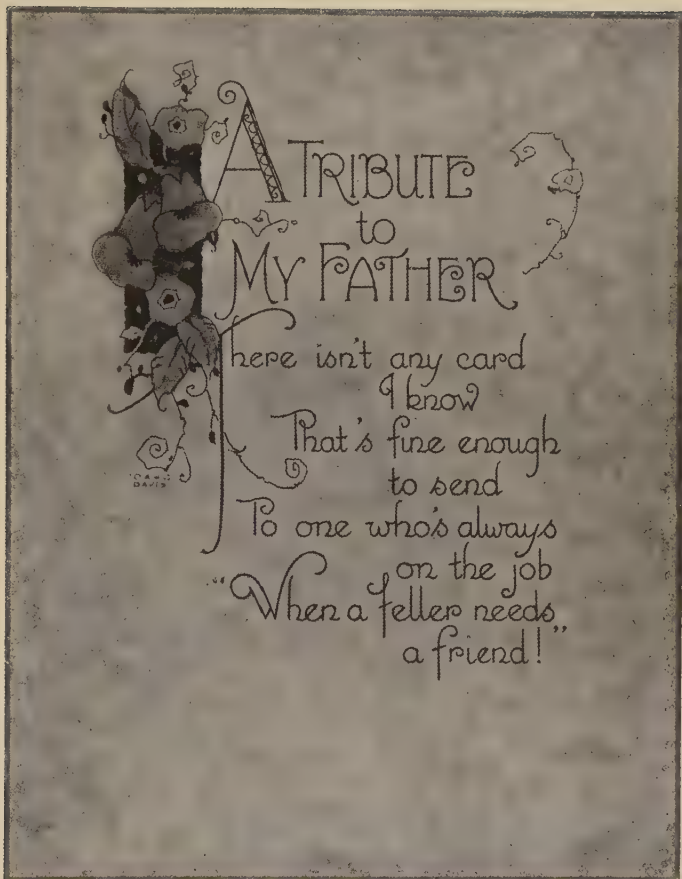 A TRIBUTE
to
MY FATHER
There isn't any card
I know
That's fine enough
to send
To one who's always
on the job
"When a feller needs
a friend!"
DAVIS